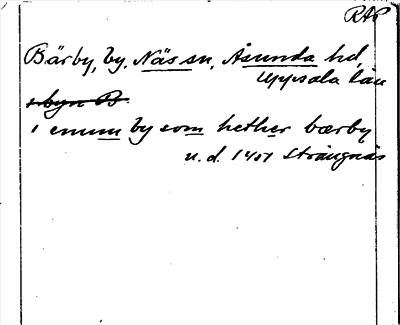 RAP
Bärby, by, Näs sn, Åsunda hd,
Uppsala län
i byn B.
i enum by som hether bærby
u. d. 1401 Strängnäs